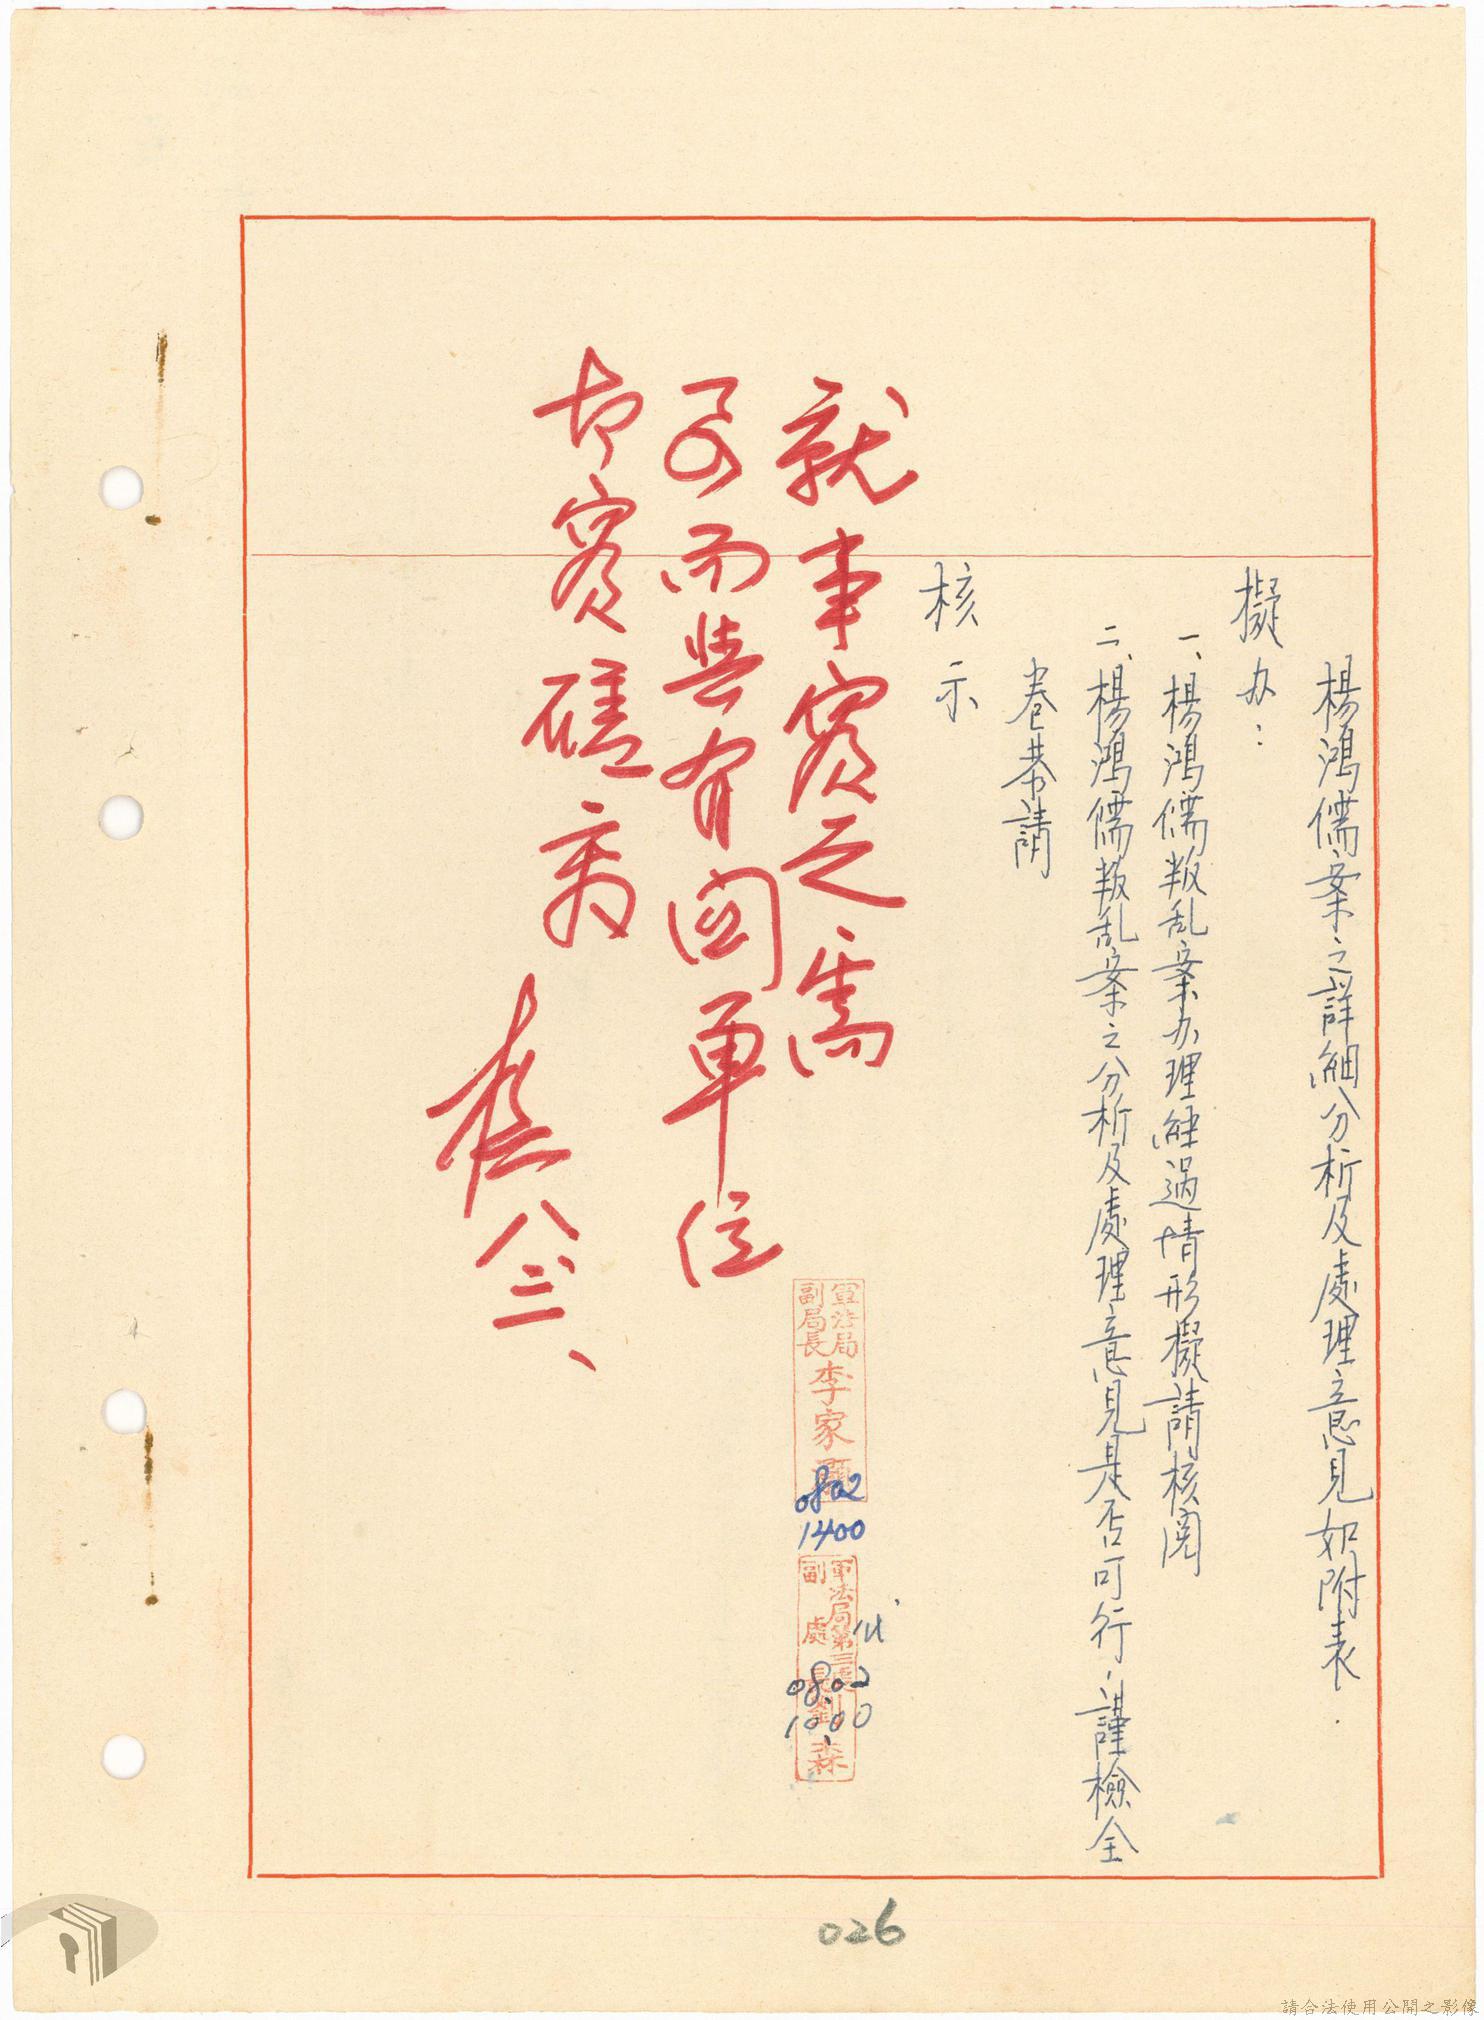 楊鴻儒案之詳細分析及處理意見如附表.
擬办：
一、楊鴻儒叛乱案办理經過情形擬請核閱
二、楊鴻儒叛乱案之分析及處理意見是否可行，謹檢全
卷恭請
核示
就事實之需
予而與有関單位
切實磋商
八三、
軍法局
副局長 李家
0802
1400
軍法局第三處
副處長劉森
0802
1000
026
請合法使用公開之影像